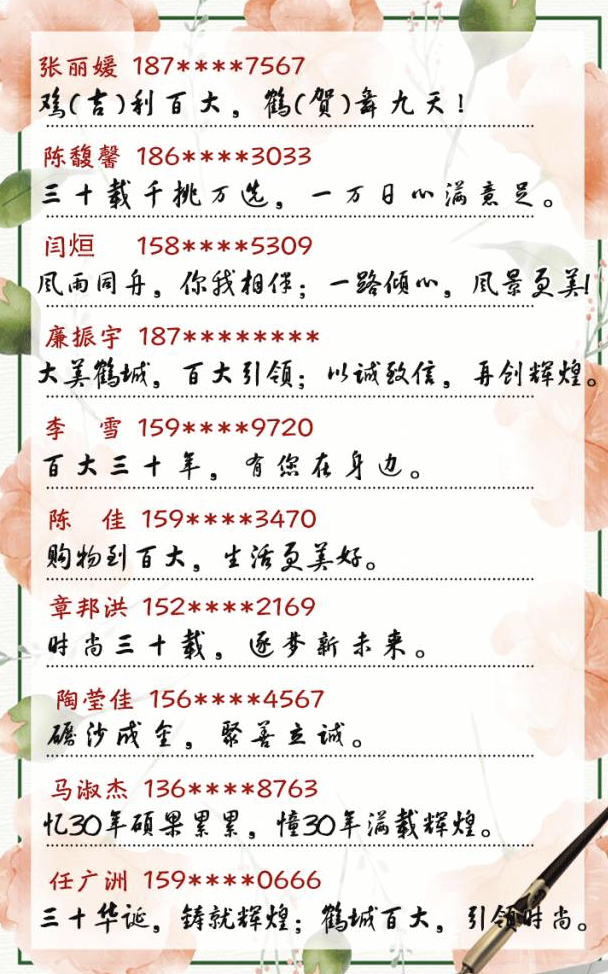 张丽媛 187****7567
鸡(吉)利百大，鹤(贺)舞九天！
陈馥馨 186****3033
三十载千挑万选，一万日心满意足。
闫烜 158****5309
风雨同舟，你我相伴；一路倾心，风景更美！
廉振宇 187********
大美鹤城，百大引领；以诚致信，再创辉煌。
李 雪 159****9720
百大三十年，有您在身边。
陈 佳 159****3470
购物到百大，生活更美好。
章邦洪 152****2169
时尚三十载，逐梦新未来。
陶莹佳 156****4567
碾沙成金，聚善立诚。
马淑杰 136****8763
忆30年硕果累累，憧30年满载辉煌。
任广洲 159****0666
三十华诞，铸就辉煌；鹤城百大，引领时尚。